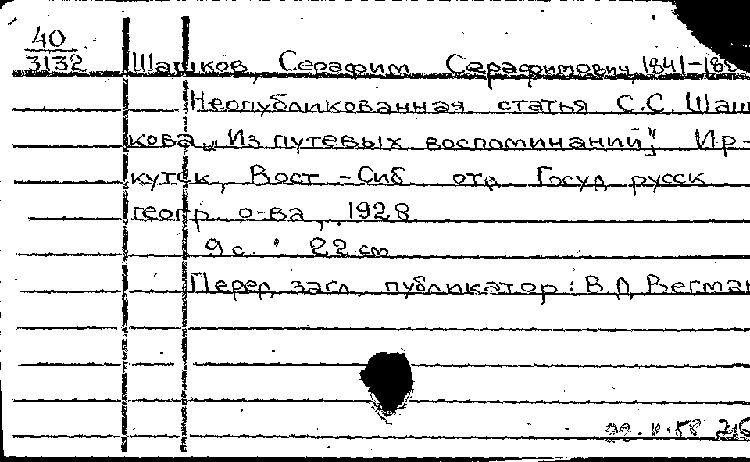 40
3132
Шашков, Серафим Серафимович, 1841-188
Неопубликованная статья С.С. Шаш
кова „Из путевых воспоминаний". Ир-
кутск, Вост-Сиб отд Госуд русск
геогр о-ва, 1928
9 с. 22 см
Перед загл публикатор: В Д Вегман